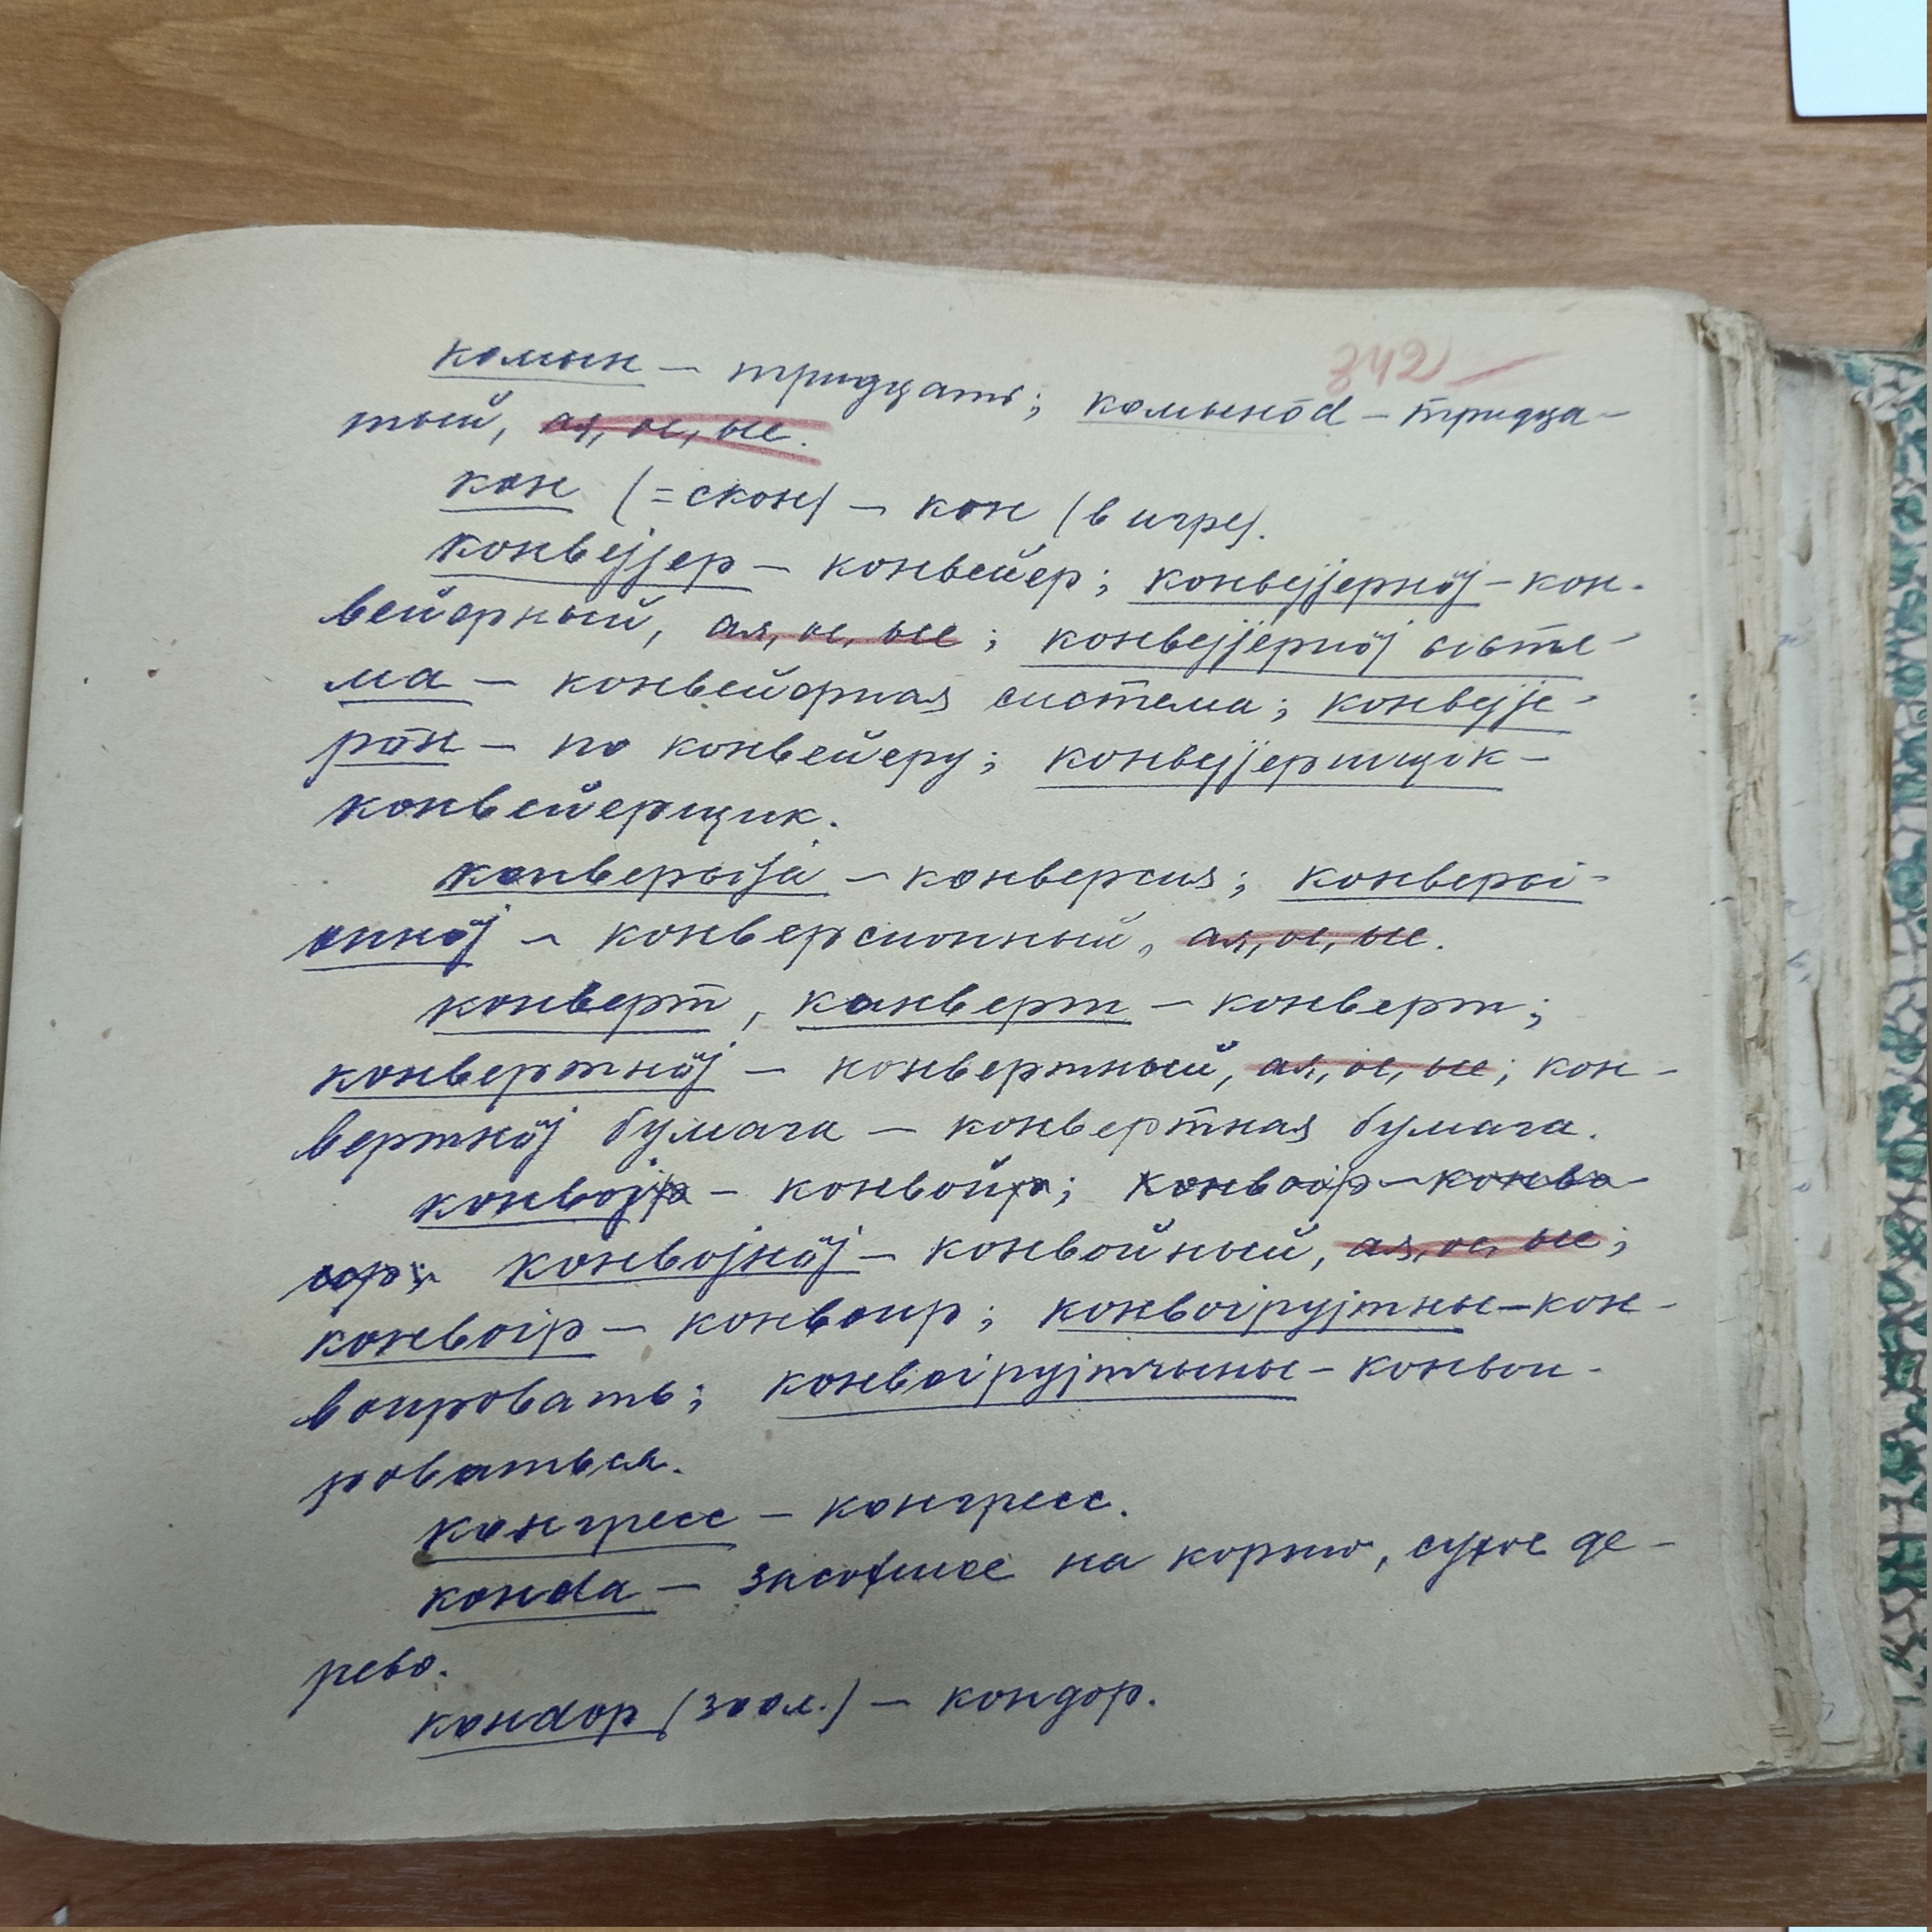 342
комын — тридцать; комынӧd — тридца-
тый, ая, ое, ые.
кон (=скон) — кон (в игре).
конвејјер — конвейер; конвејјернӧј — кон-
вейерный, ая, ое, ые; конвејјернӧј сістe-
ма — конвейерная система; конвејје-
рӧн — по конвейеру; конвејјерщик —
конвейерщик.
конверсіја — конверсия; конверсі-
оннӧј — конверсионный, ая, ое, ые.
конверт, канверт — конверт;
конвертнӧј — конвертный, ая, ое, ые; кон-
вертнӧј бумага — конвертная бумага.
конвој — конвой; конвоір — конво
ир; конвојнӧј — конвойный, ая, ое, ые;
конвоір — конвоир; конвоірујтны — кон-
воировать; конвоірујтчыны — конвои-
роваться.
конгресс — конгресс.
конdа — засохшее на корню, сухое де-
рево.
конdор (зоол.) — кондор.